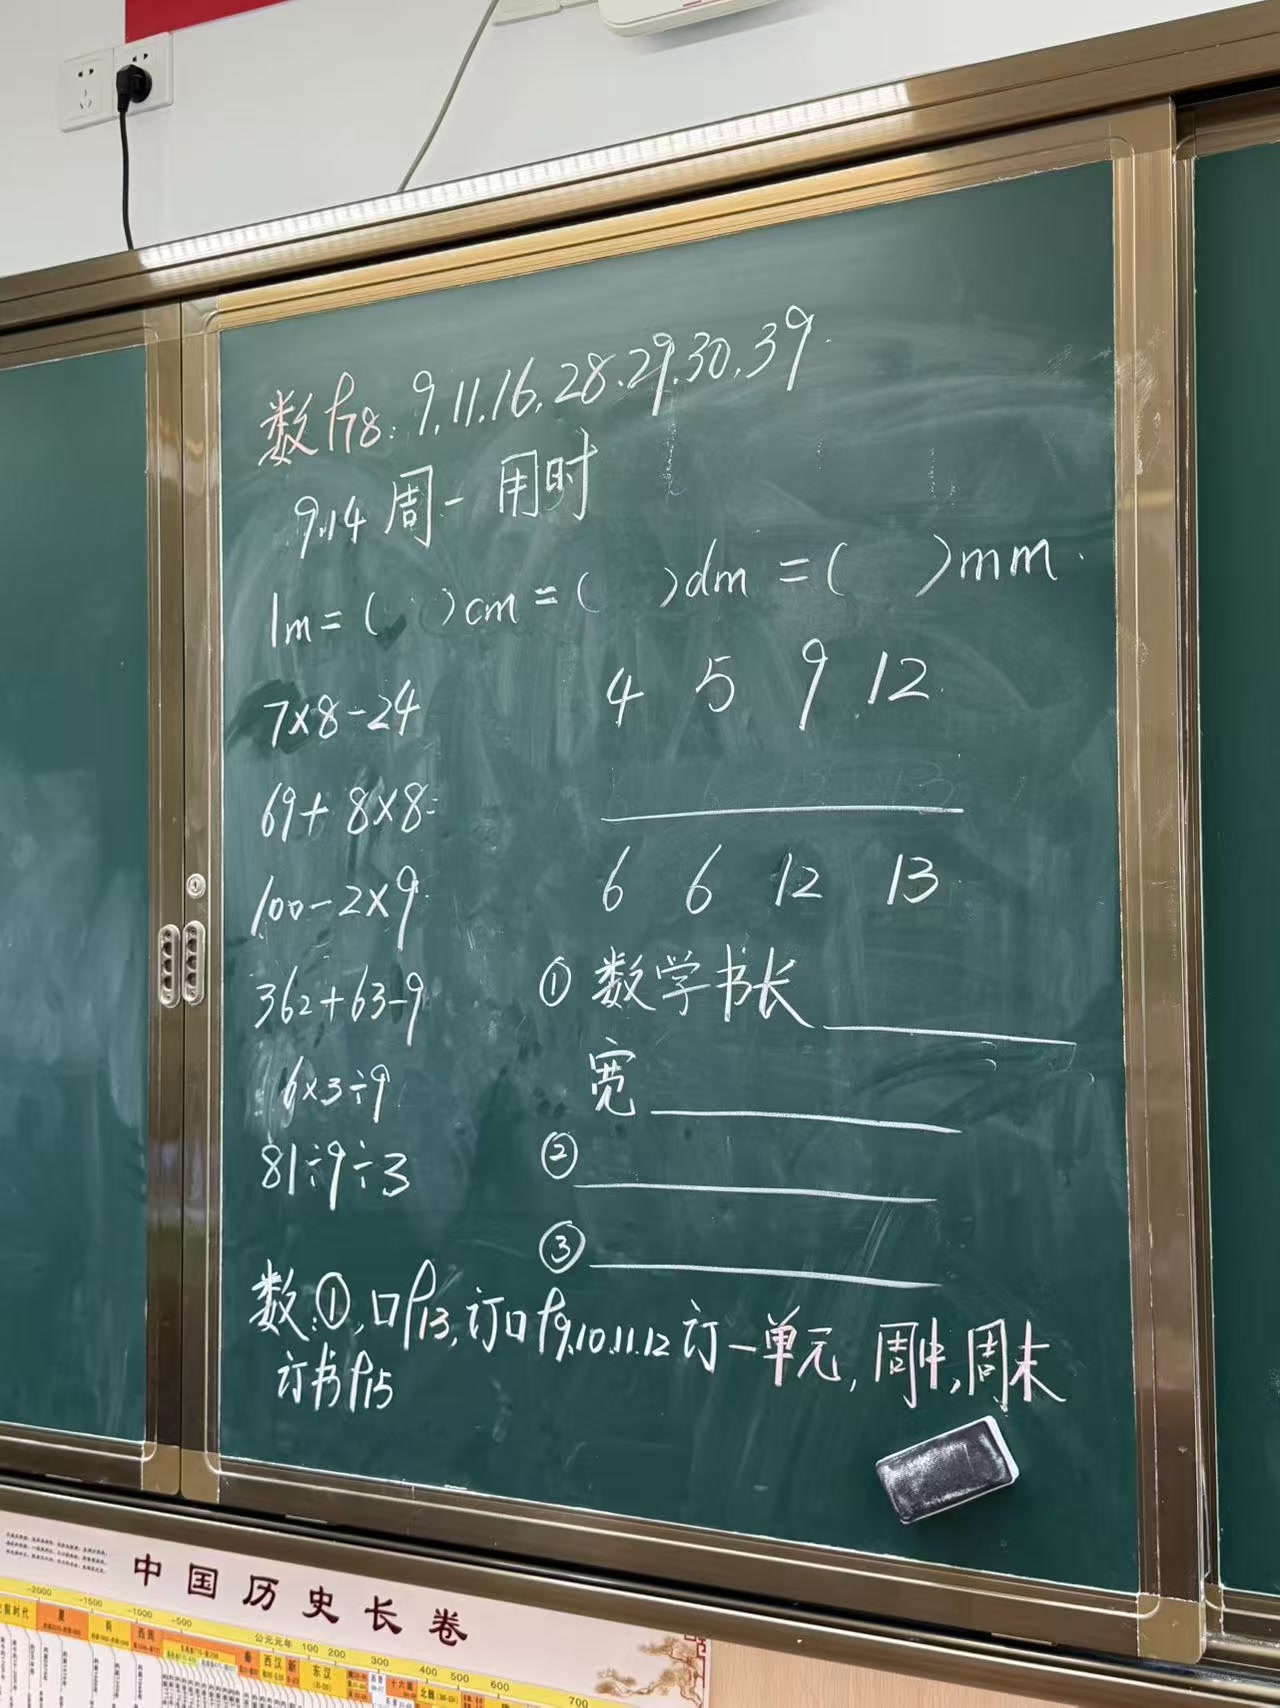 数P78: 9.11.16.28.29.30.39.
9.14 周一 用时
1m=( )cm=( )dm=( )mm.
7×8-24
4 5 9 12
69+8×8=
100-2×9
6 6 12 13
362+63-9
①数学书长______
6×3÷9
宽______
81÷9÷3
②______
③______
数:①,口P13,订口P9.10.11.12订一单元,周中,周末
订书P15
中国历史长卷
-2000 -1500 -1000 -500 公元元年 100 200 300 400 500 600 700
夏 商 西周 秦 西汉 新 东汉 十六国 北魏